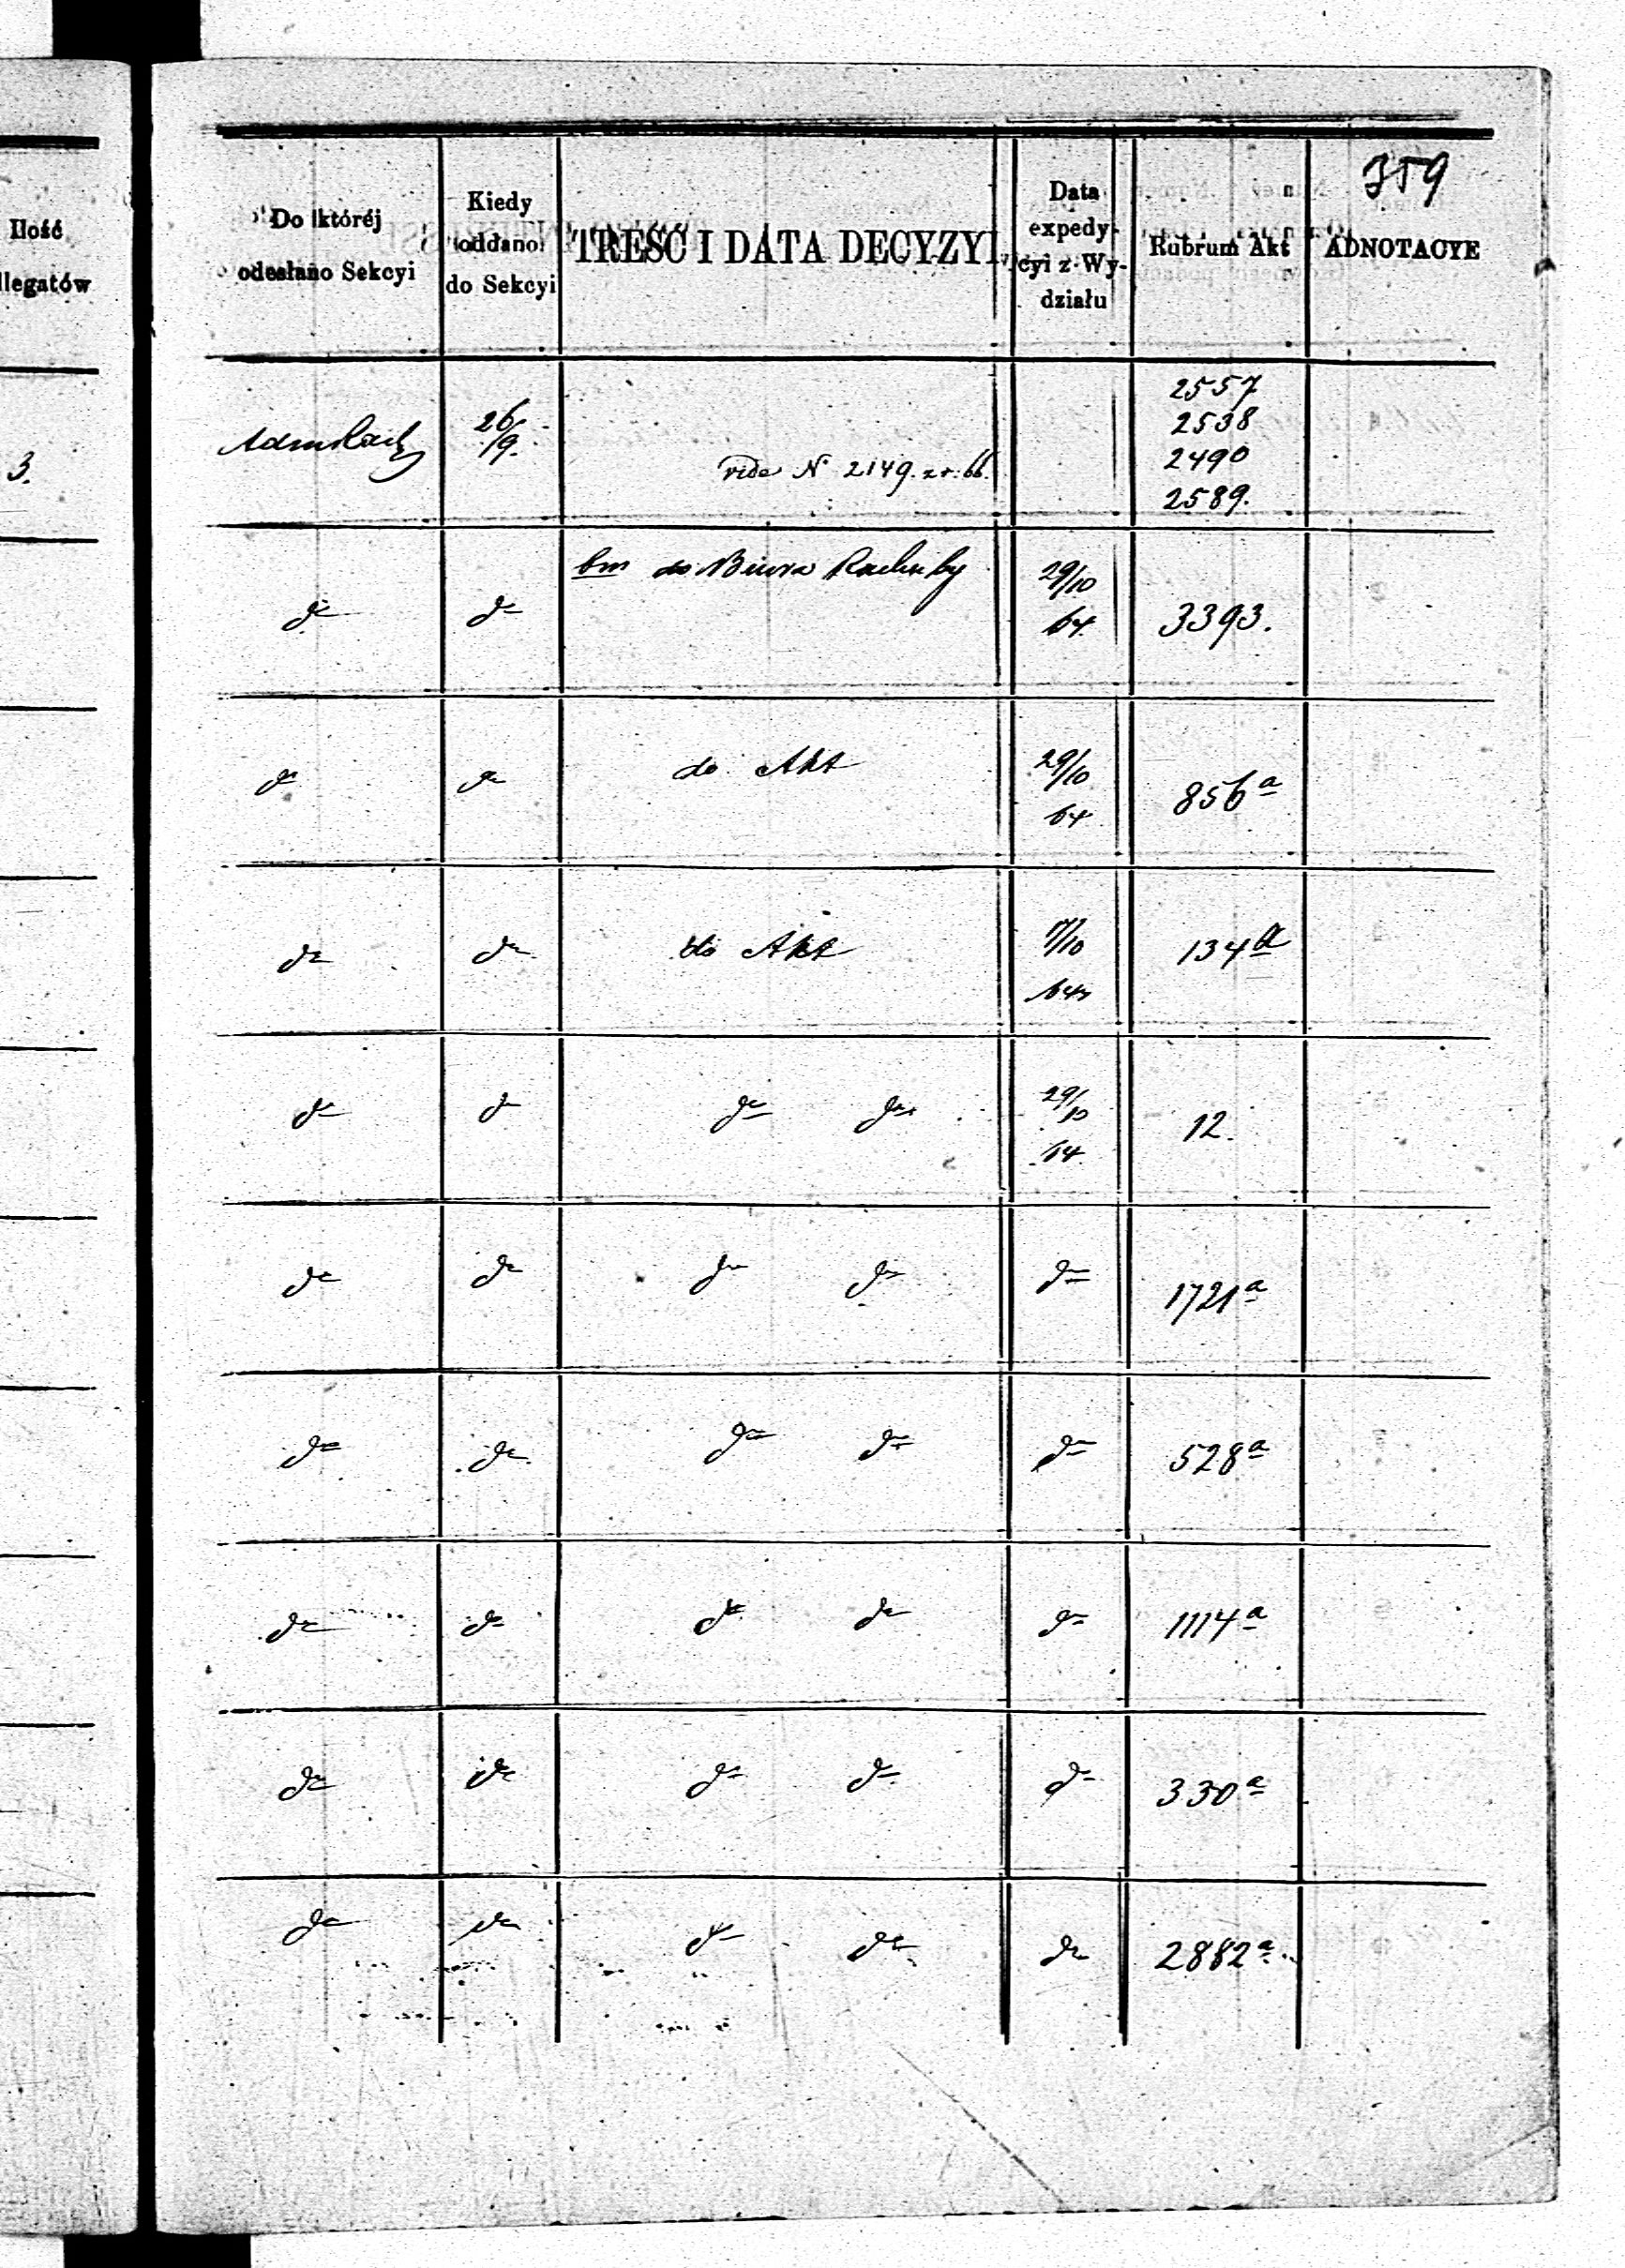 359
Ilość
llegatów
Do któréj
odesłano Sekcyi
Kiedy
oddano
do Sekcyi
TREŚĆ I DATA DECYZYI
Data
expedy-
cyi z Wy-
działu
Rubrum Akt
ADNOTACYE
3.
26/9.
vide N 2149. z r. 66.
2557
2538
2490
2589.
dº
dº
bm do Biura Rachuby
29/10
64.
3393.
dº
dº
do Akt
29/10
64
856 a
dº
dº
do Akt
64
134 a
dº
dº
dº dº
29/10
64
12.
dº
dº
dº dº
dº
1721 a
dº
dº
dº dº
dº
528 a
dº
dº
dº dº
dº
1114 a
dº
dº
dº dº
dº
330 a
dº
dº
dº dº
dº
2882 a